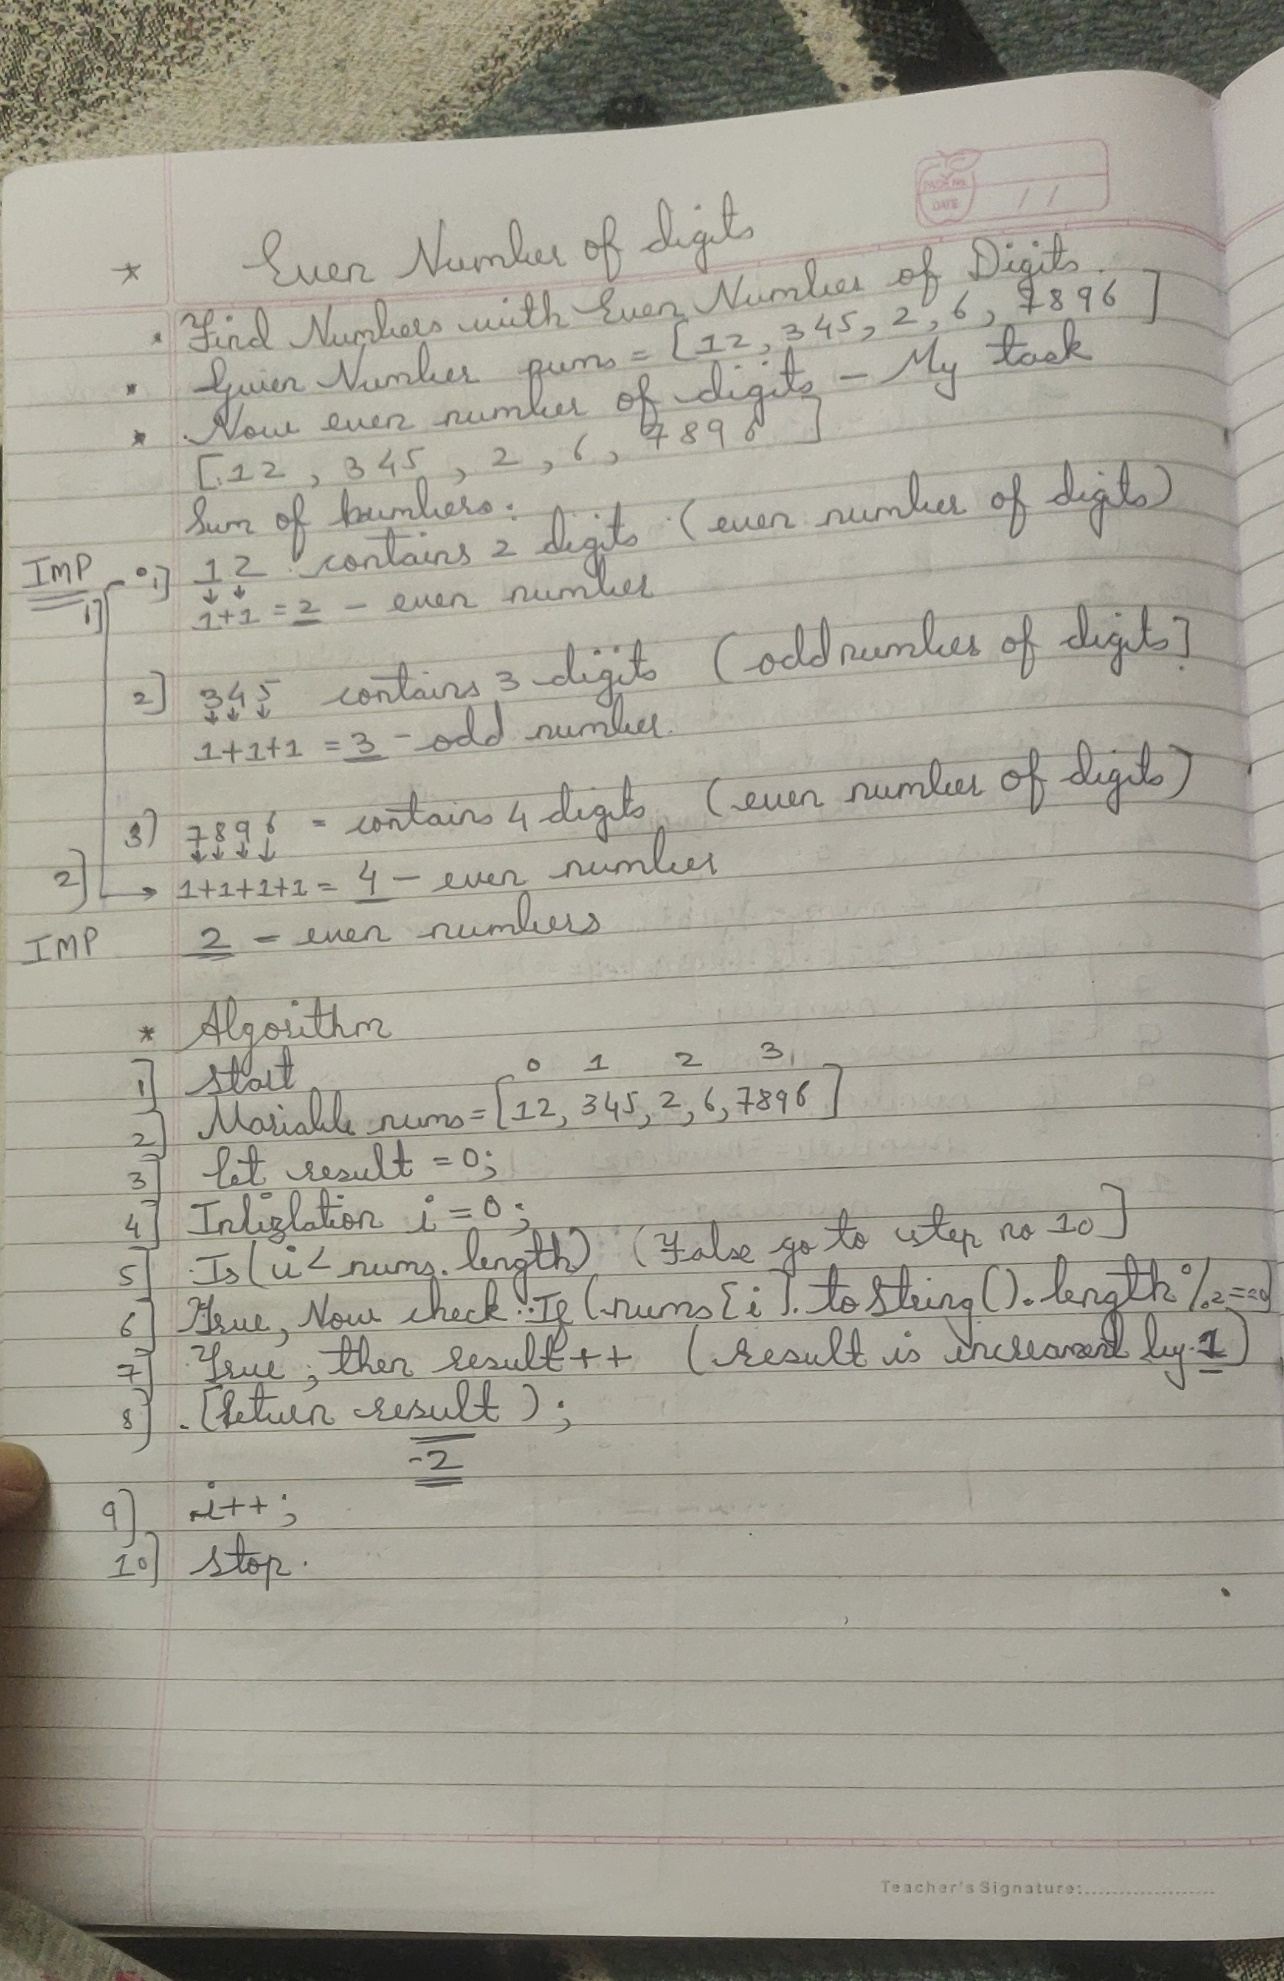 PAGE No.
DATE / /
* Even Number of digits
• Find Numbers with Even Number of Digits.
* Given Number nums = [12, 345, 2, 6, 7896]
* Now even number of digits – My task
[12, 345, 2, 6, 7896]
Sum of bumbers:
IMP 1] 12 contains 2 digits (even number of digits)
1] 1+1 = 2 – even number
2] 345 contains 3 digits (odd number of digits]
1+1+1 = 3 – odd number.
3) 7896 = contains 4 digits (even number of digits)
2] → 1+1+1+1 = 4 – even number
IMP 2 – even numbers
* Algorithm
1] start
0 1 2 3
2] Mariable nums = [12, 345, 2, 6, 7896]
3] let result = 0;
4] Intizlation i = 0;
5] Is (i < nums.length) (False go to step no 10]
6] True, Now check: If (nums[i].toString().length%2==0]
7] True, then result++ (result is increased by 1)
8] (Return result);
-2
9] i++;
10] stop.
Teacher's Signature: